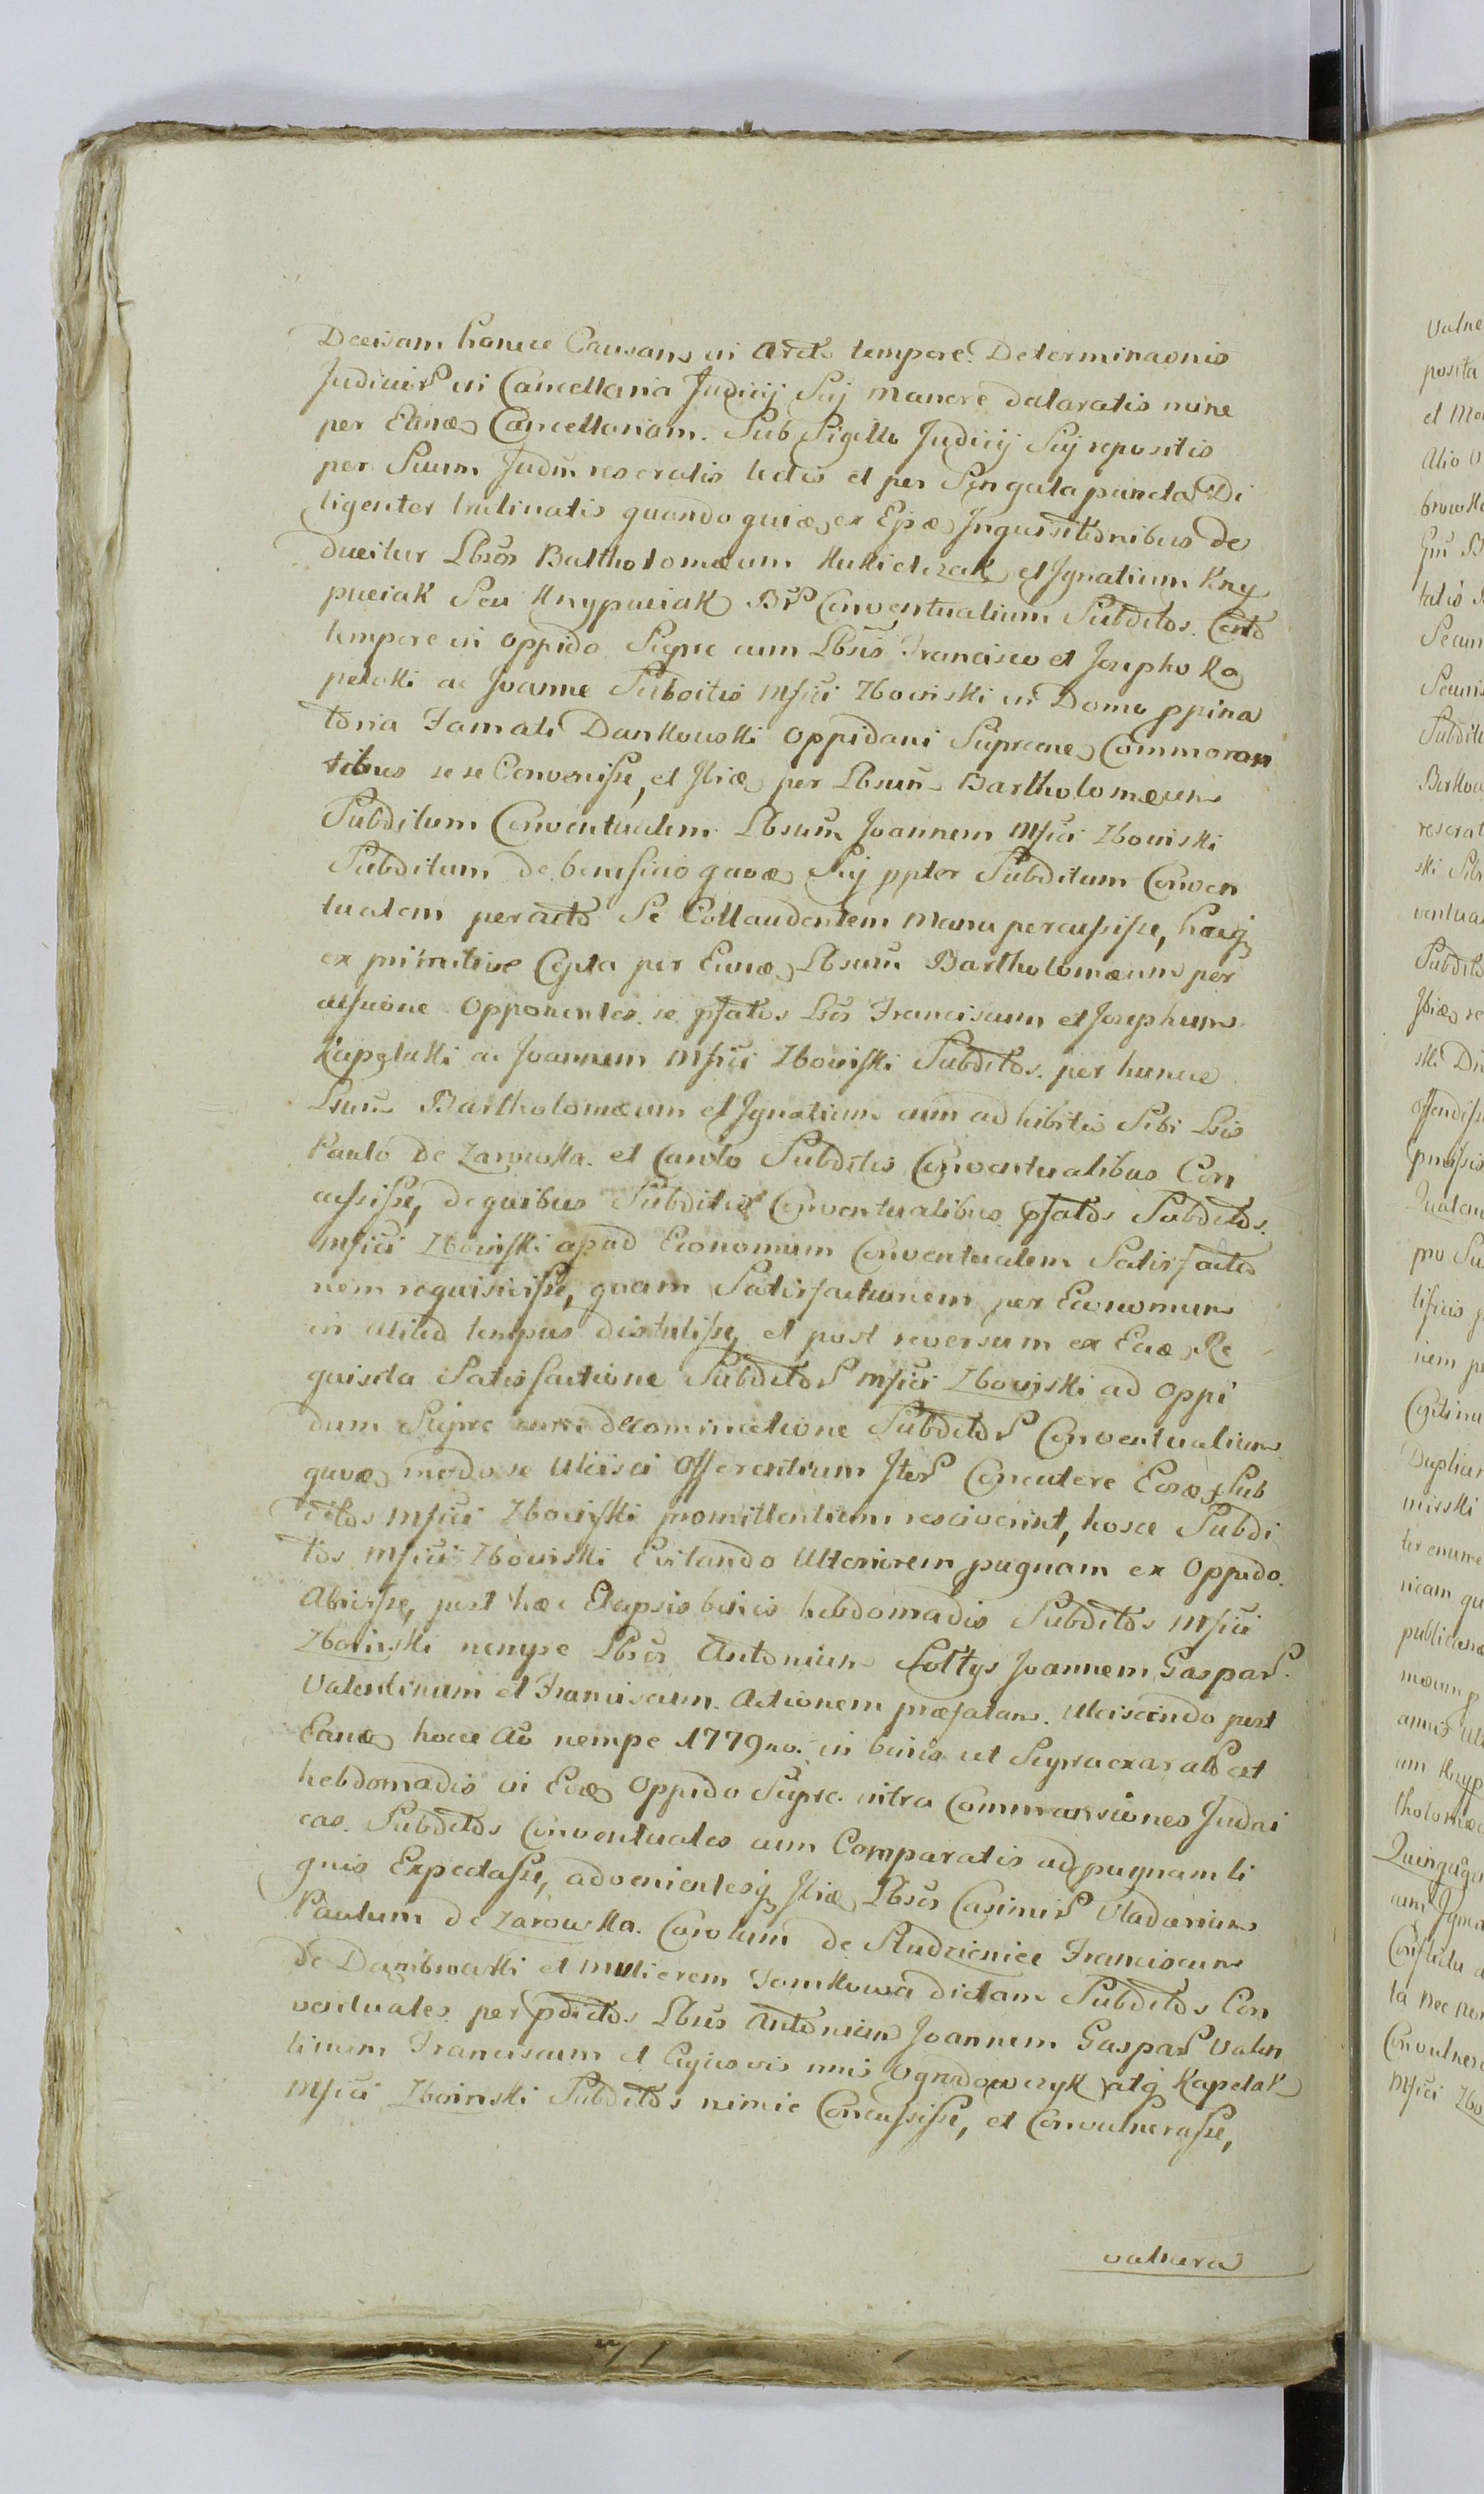 Decisam hancce Causam in arcto tempore Determinaonis
Judiciorū in Cancellaria Judicij Suj manere declaratis nunc
per Eanᵈᵉ Cancellariam Sub Sigillo Judicij Suj repositis
per Suum Judm reseratis lectis et per Singula puncta Di
ligenter trutinatis quando quidē ex Ejsd Inquisitionibus de
ducitur Lbsos Bartholomæum Kukielczak et Ignatium Kny
puciak Seu Knypuciak Conventualium Subditos. Certo
tempore in Oppido Supre cum Lbsis Francisco et Josepho Ka
pelakki ac Joanne Subditis Mfici Zboinski in Domo ppina
toria Famati Dankowski Oppidani Suprene Commoran
tibus se se Convenisse, et Ibidē per Lbsum Bartholomæum
Subditum Conventualem Lbsum Joannem Mfici Zboinski
Subditum de beneficio Suj ppter Subditum Conven
tualem peracto Se Collaudentem Manu percussisse, hacq
ex primitive Cepta per Eundē Lbsum Bartholomæum per
cussione Opponentes se pfatos Lsos Franciscum et Josephum
Kapelakki ac Joannem Mfici Zboinski Subditos per huncce
Lsum Bartholomæum et Ignatium cum adhibitis Sibi Lsis
Paulo De Zarowka et Carolo Subditis Conventualibus Con
cussisse, de quibus Subditis Conventualibus pfatos Subditos
Mfici Zboinski apud Economum Conventualem Satisfactio
nem requisivisse, quam Satisfactionem per Economum
in aliud tempus distulisse, et post reversum ex Eadē Re
quisita Satisfactione Subditorū Mfici Zboinski ad Oppi
dum Supre decominatione Subditorū Conventualium
modo se Ulcisci Offerentium Iterū Concutere Eosdē Sub
ditos Mfici Zboinski promittentium resciverint, hosce Subdi
tos Mfici Zboinski Evitando Ulteriorem pugnam ex Oppido
Abivisse, post hæc Elapsis binis hebdomadis Subditos Mfici
Zboinski nempe Lbsos Antonium Soltys Joannem Gasparū
Valentinum et Franciscum Actionem præfatam Ulciscendo post
Eandē hocce Ao nempe 1779no. in binis ut Supra exarat est
hebdomadis in Eodē Oppido Supre. intra Commansiones Judai
cas. Subditos Conventuales cum Comparatis ad pugnam li
gnis Expectasse, advenientesq Ibidē Lbsos Casimirū Vladarium
Paulum de Zarowka Carolum de Studzieniec Franciscum
de Dambrowski et mulierem Tomkowa dictam Subditos Con
ventuales per pdictos Lbsos Antonium Joannem Gasparū Valen
tinum Franciscum et Cujusvis nnis Ogrodowczyk atq Kapelak
Mfici Zboinski Subditos nimie Concussisse, et Convulnerasse,
vulnera